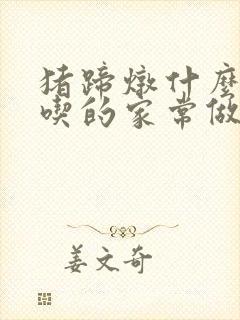 猪蹄燉什麽
喫的家常做
姜文奇